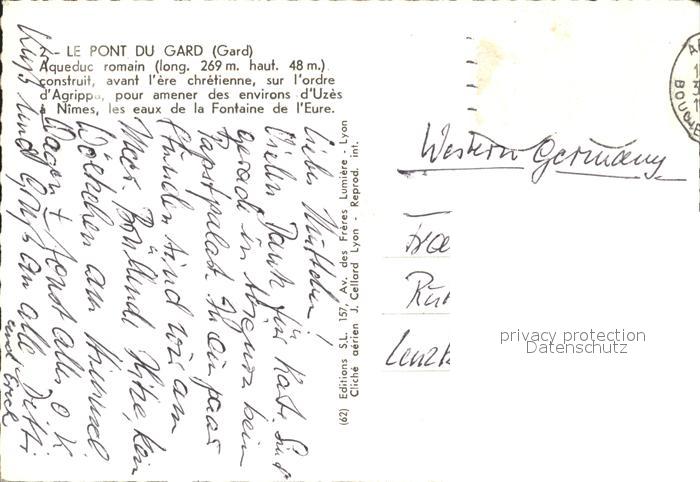 LE PONT DU GARD (Gard)
Aqueduc romain (long. 269 m. haut. 48 m.)
construit, avant l'ère chrétienne, sur l'ordre
d'Agrippa, pour amener des environs d'Uzès
à Nîmes, les eaux de la Fontaine de l'Eure.
(62) Editions S.L. 157, Av. des Frères Lumière - Lyon
Cliché aérien J. Cellard Lyon - Reprod. int.
Liebe Mutti
Vielen Dank für Karte. Sind
gerade in Avignon beim
Papstpalast. In ein paar
Stunden sind wir am
Meer. Hitze kein
Wölkchen am Himmel
sonst alles O K
Kuß und Gruß an alle
und
Western Germany
Lenzk
privacy protection
Datenschutz